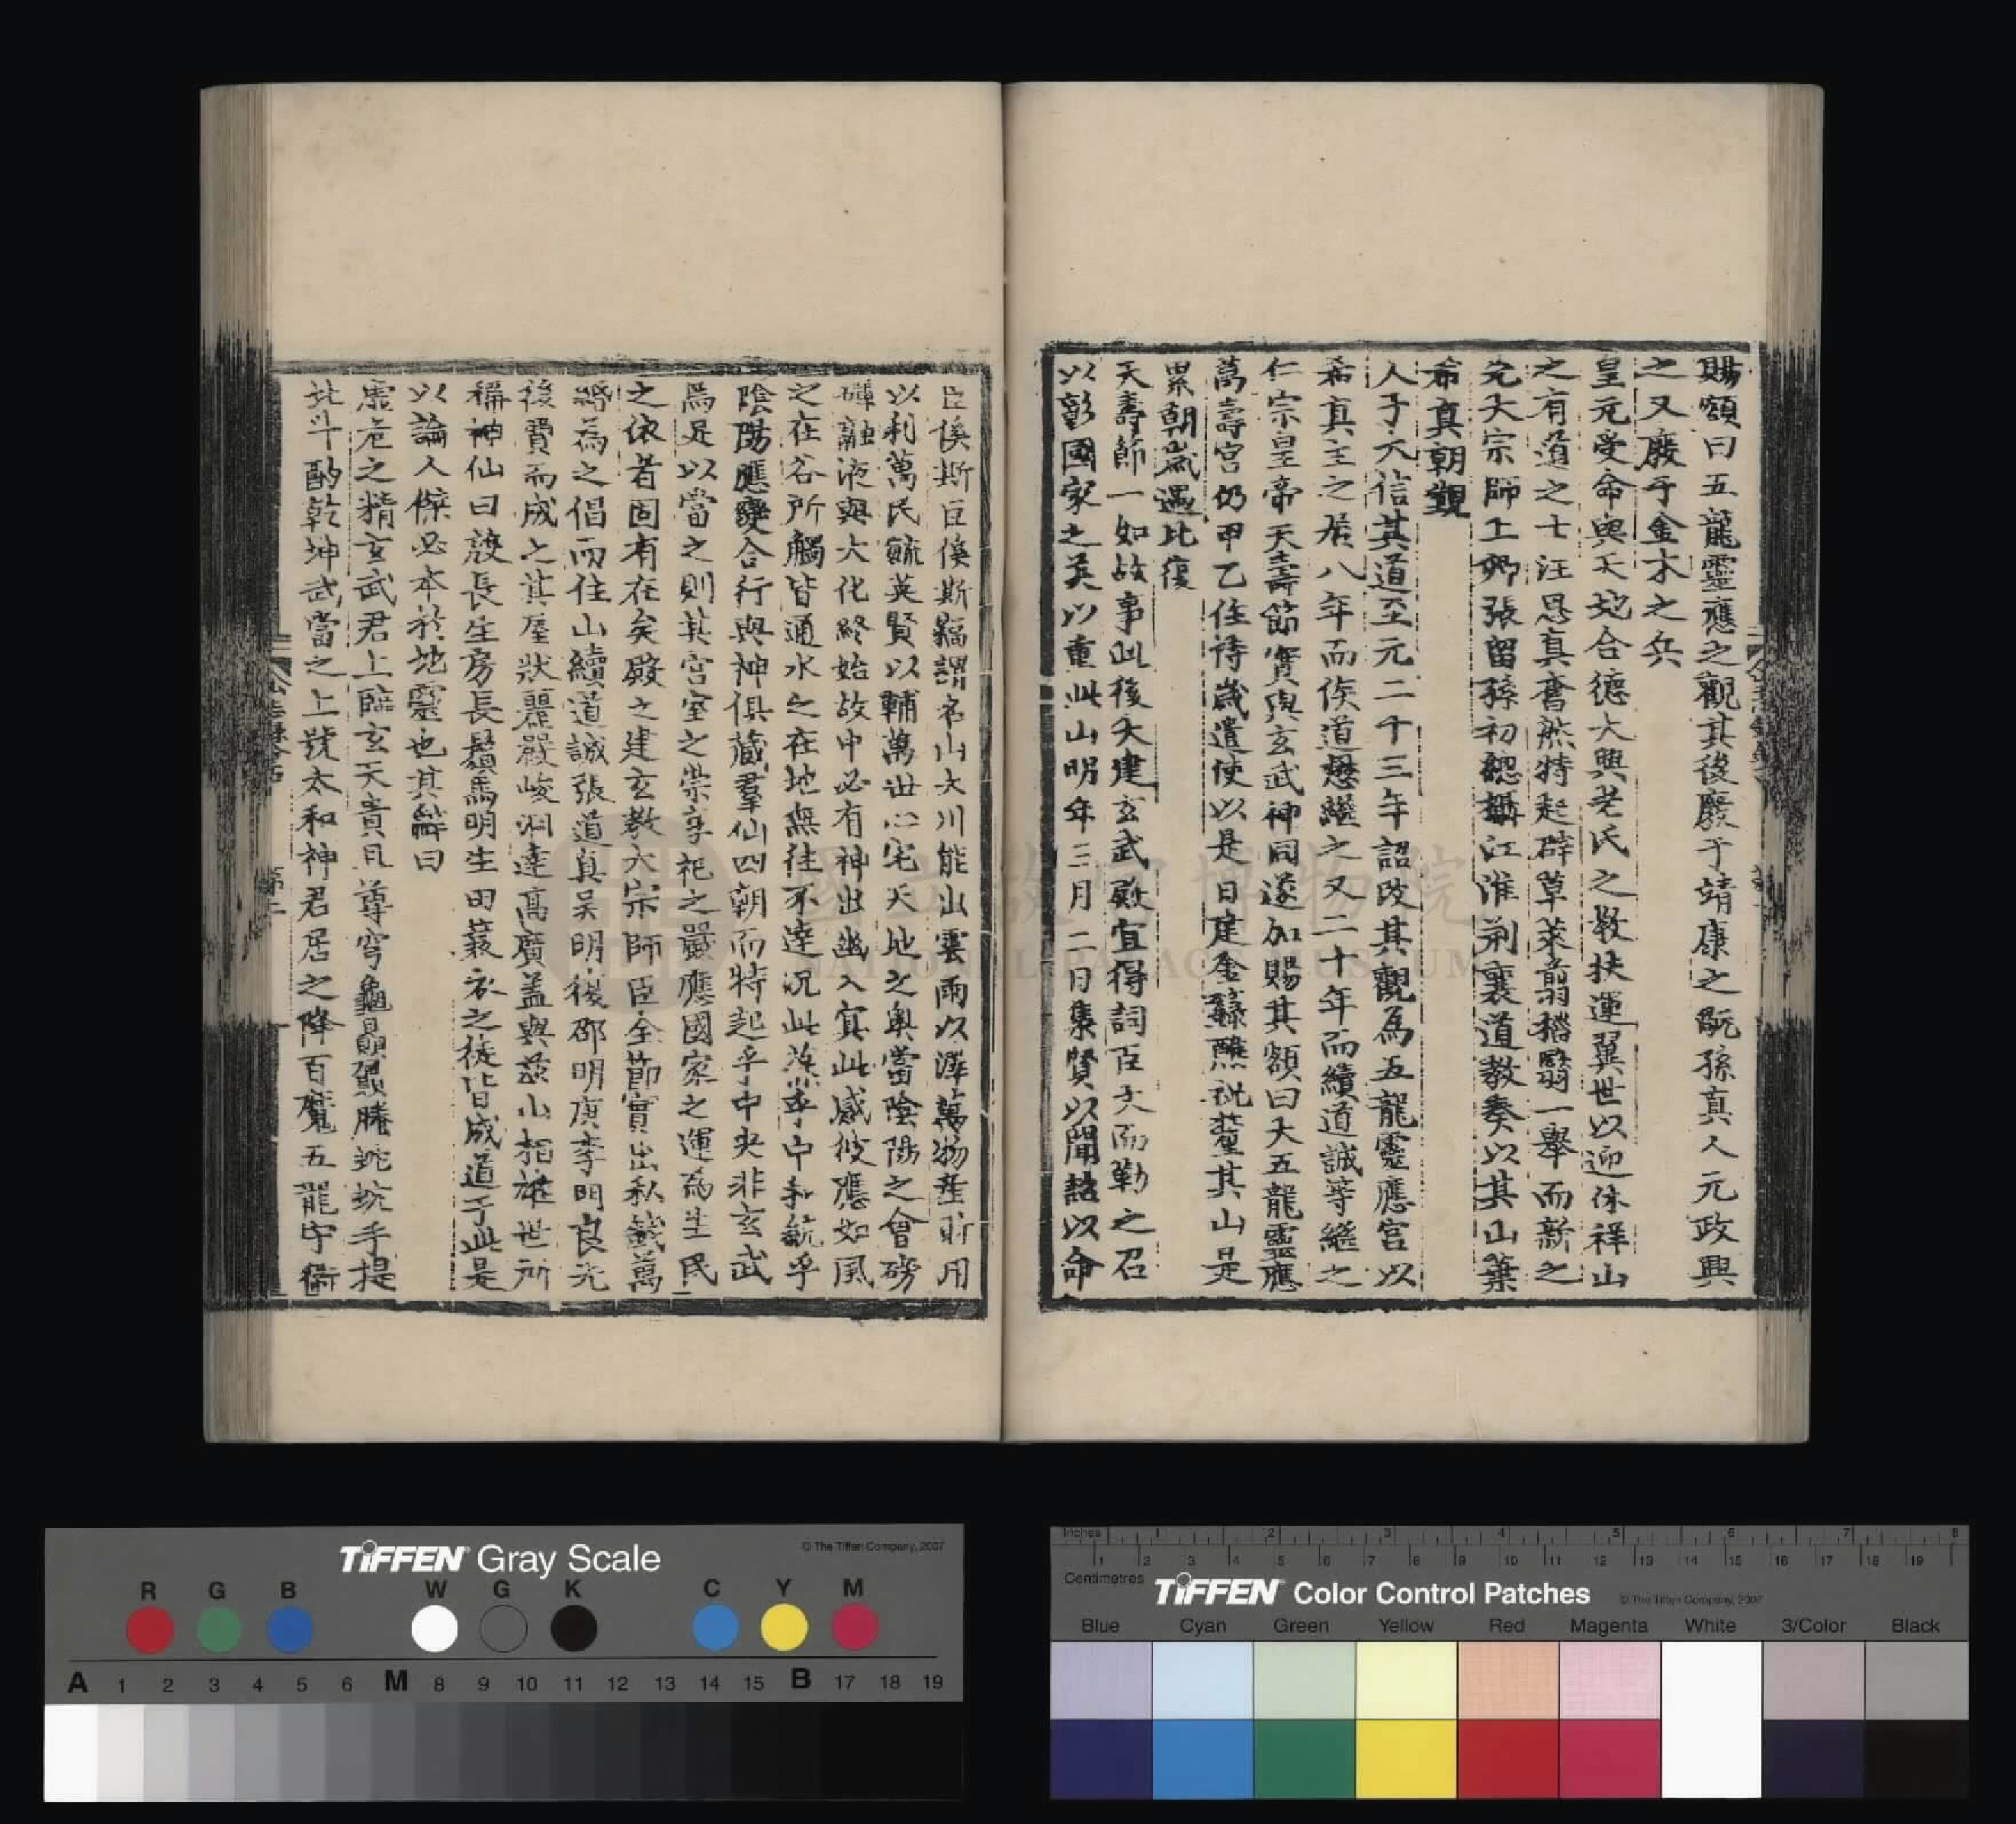 賜額曰五龍靈應之觀其後廢于靖康之阨孫真人元政興
之又廢于金木之兵
皇元受命與天地合德大興老氏之教扶運翼世以迎休祥山
之有道之士汪思真奮然特起辟草萊翦榛翳一舉而新之
先大宗師上卿張留孫初總攝江淮荆襄道教奏以其山葉
希真朝覲
人子天信其道至元二十三年詔改其觀為五龍靈應宮以
希真主之居八年而侯道懋繼之又二十年而續道誠等繼之
仁宗皇帝天壽節實與玄武神同遂加賜其額曰大五龍靈應
萬壽宮仍甲乙住持歲遣使以是日建金籙醮祝釐其山是
累朝歲遇比復
天壽節一如故事此後大建玄武殿宜得詞臣大而勒之召
以彰國家之美以重此山明年三月二日集賢以聞詔以命
臣傒斯臣傒斯竊謂名山大川能出雲雨以澤萬物產財用
以利萬民毓英賢以輔萬世心宅天地之奧當陰陽之會磅
礴融液與大化終始故中必有神出幽入冥此感彼應如風
之在谷所觸皆通水之在地無往不達況此落乎中和航乎
陰陽應變合行與神俱藏羣仙四朝而特起乎中央非玄武
焉足以當之則其宮室之崇享祀之嚴應國家之運為生民
之依者固有在矣殿之建玄教大宗師臣全節實出私錢萬
緡為之倡而住山續道誠張道真吴明復邵明庚李明良先
後費而成之其屋狀麗嚴峻洞達高廣盖與茲山相雄世所
稱神仙曰談長生房長鬚馬明生田蓑衣之徒皆成道于此是
以論人傑必本於地靈也其辭曰
虛危之精玄武君上臨玄天貴且尊穹龜贔屭騰蛇蚖手提
北斗酌乾坤武當之上號太和神君居之降百魔五龍守衛
TIFFEN Gray Scale
© The Tiffen Company, 2007
R G B W G K C Y M
A 1 2 3 4 5 6 M 8 9 10 11 12 13 14 15 B 17 18 19
Inches 1 2 3 4 5 6 7 8
1 2 3 4 5 6 7 8 9 10 11 12 13 14 15 16 17 18 19
Centimetres
TIFFEN Color Control Patches
© The Tiffen Company, 2007
Blue Cyan Green Yellow Red Magenta White 3/Color Black
國立故宮博物院
NATIONAL PALACE MUSEUM